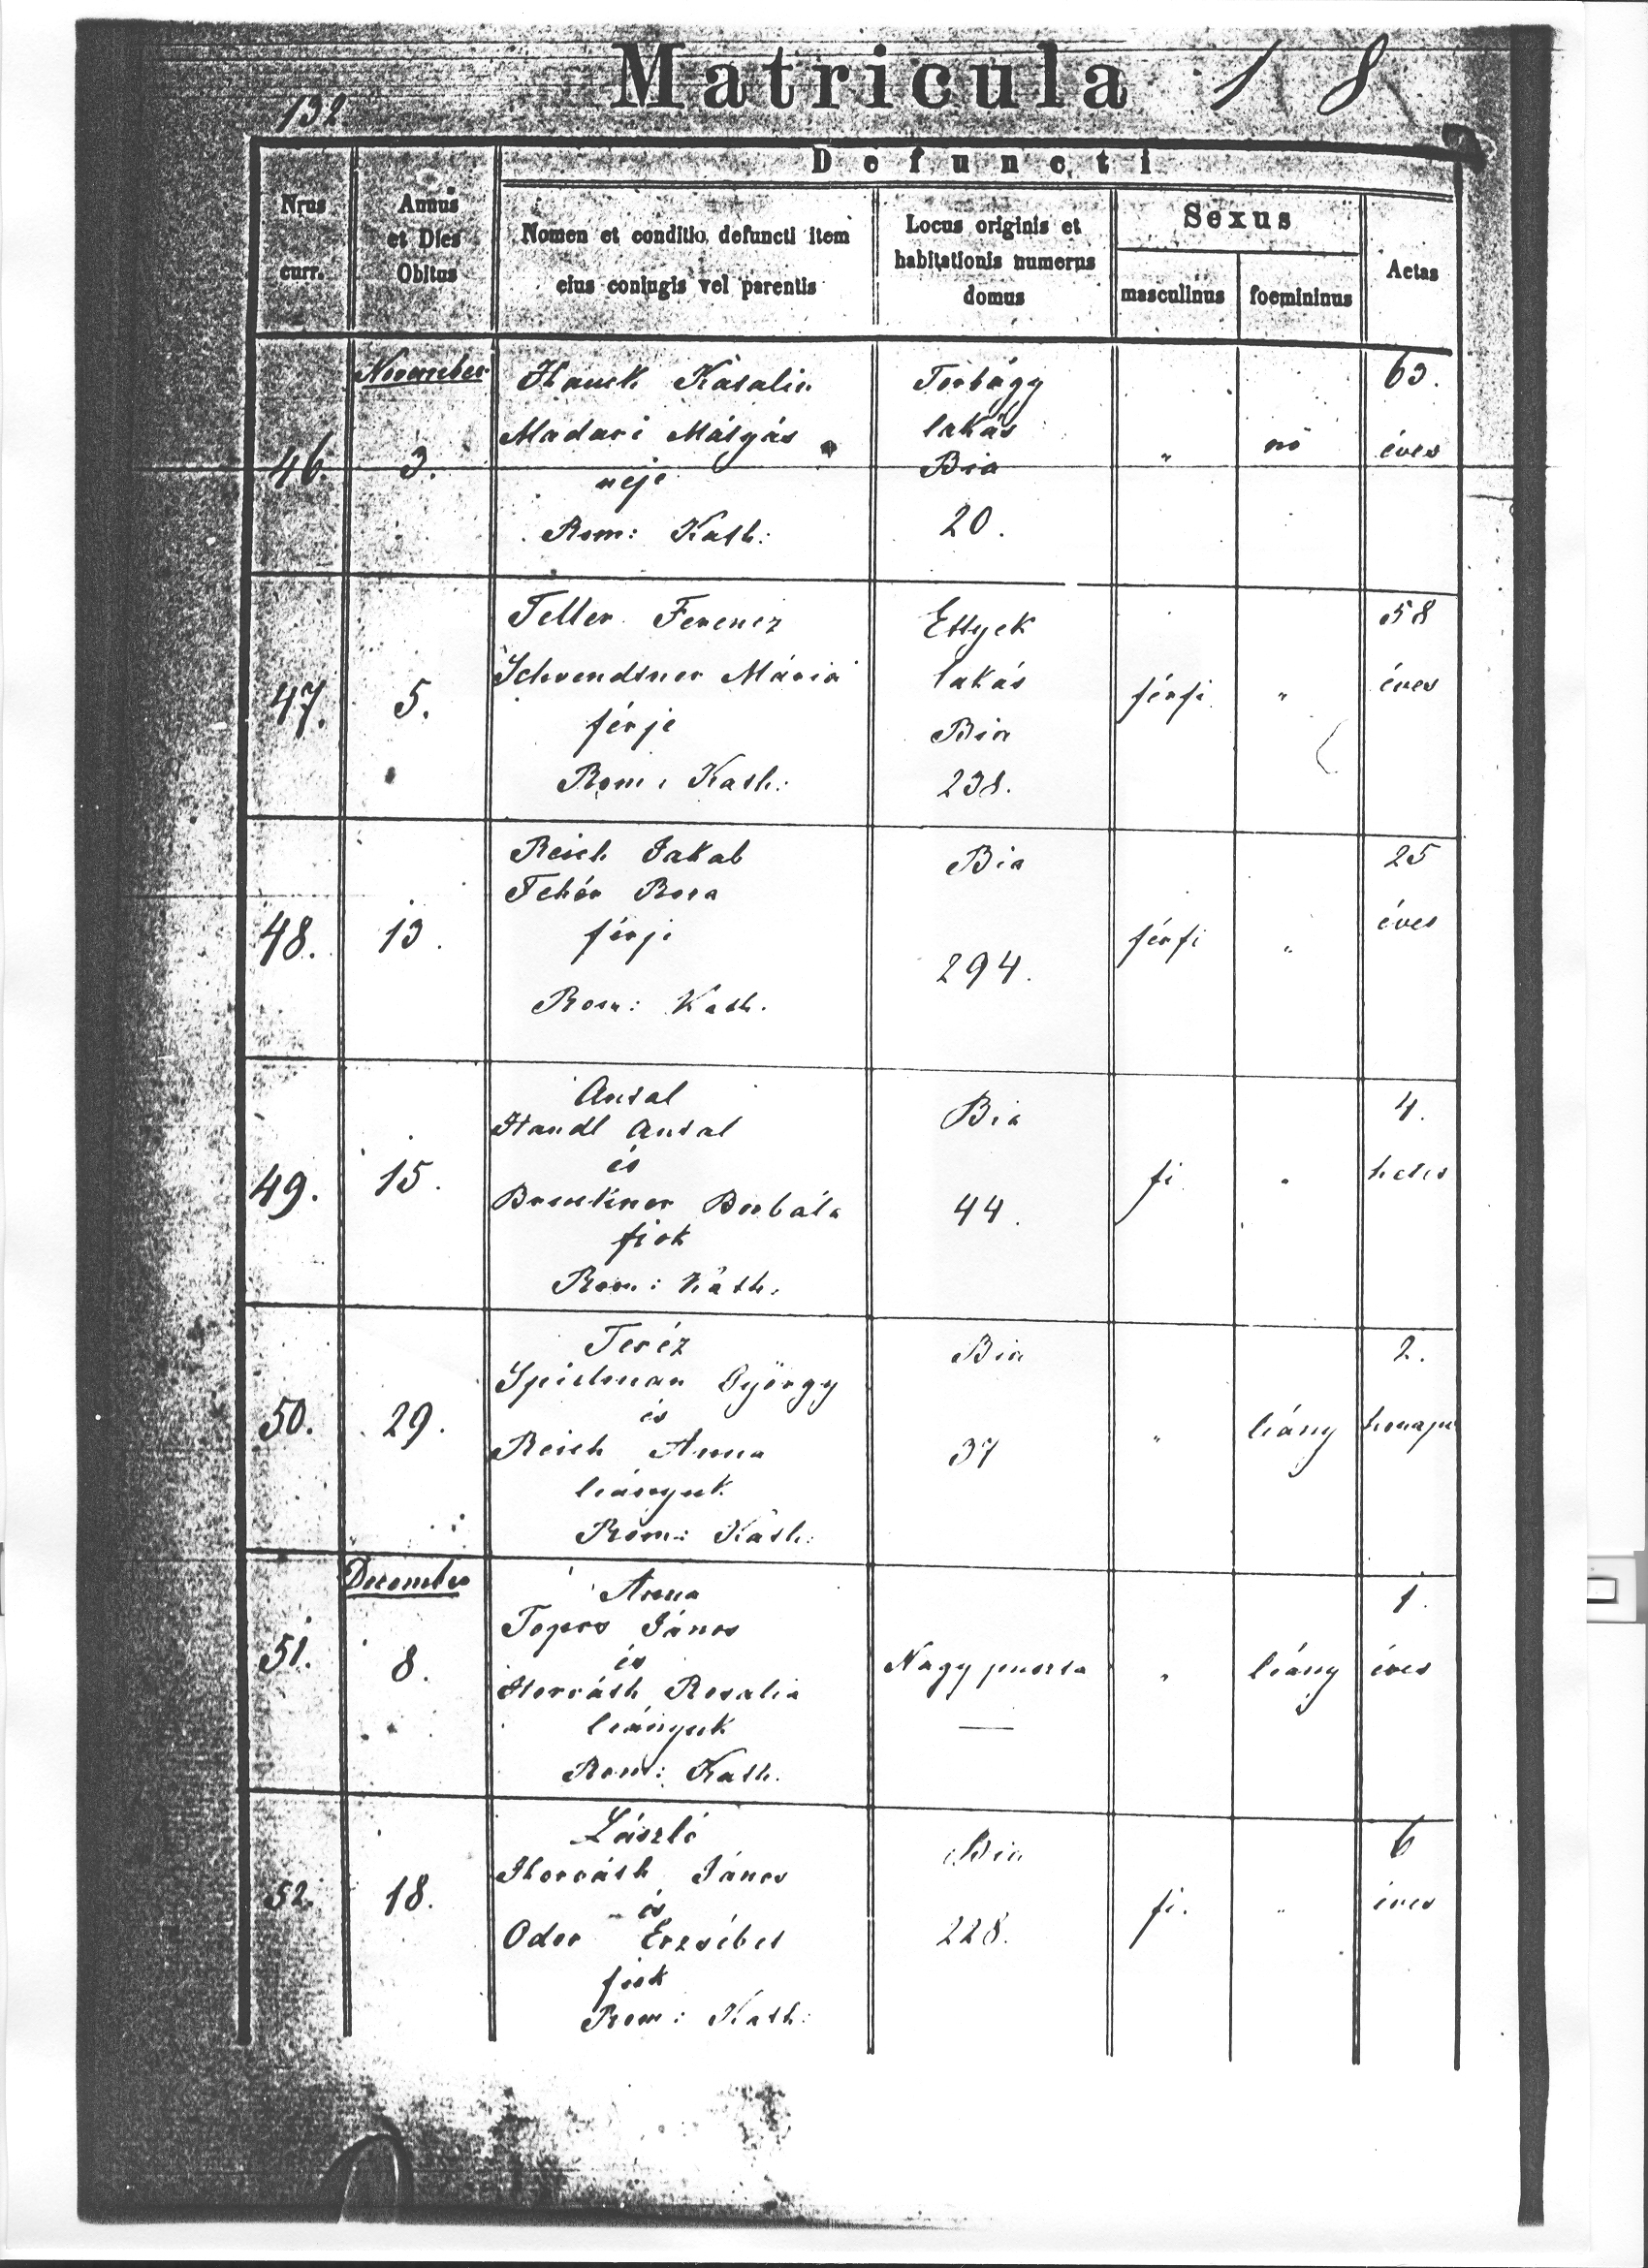 Matricula 18
132
Defuncti
Nrus
curr.
Annus
et Dies
Obitus
Nomen et conditio defuncti item
eius coniugis vel parentis
Locus originis et
habitationis numerus
domus
Sexus
masculinus
foemininus
Aetas
November
46.
3.
Hauck Katalin
Madari Mátyás
neje
Rom: Kath:
Torbágy
lakás
Bia
20.
"
nő
63.
éves
47.
5.
Teller Ferencz
Schvendtner Mária
férje
Rom: Kath:
Ettyek
lakás
Bia
238.
férfi
"
58
éves
48.
13.
Reich Jakab
Fehér Rosa
férje
Rom: Kath.
Bia
294.
férfi
"
25
éves
49.
15.
Antal
Handl Antal
és
Bruckner Borbála
fiok
Rom: Kath.
Bia
44.
fi
"
4.
hetes
50.
29.
Teréz
Spielman György
és
Reich Anna
leányuk
Rom: Kath:
Bia
37
"
leány
2.
honapu
December
51.
8.
Anna
János
és
Horváth Rosalia
leányuk
Rom: Kath.
Nagy puszta
—
"
leány
1.
éves
52.
18.
László
Horváth János
és
Oder Erzsébet
fiok
Rom: Kath:
Bia
228.
fi.
"
6
éves